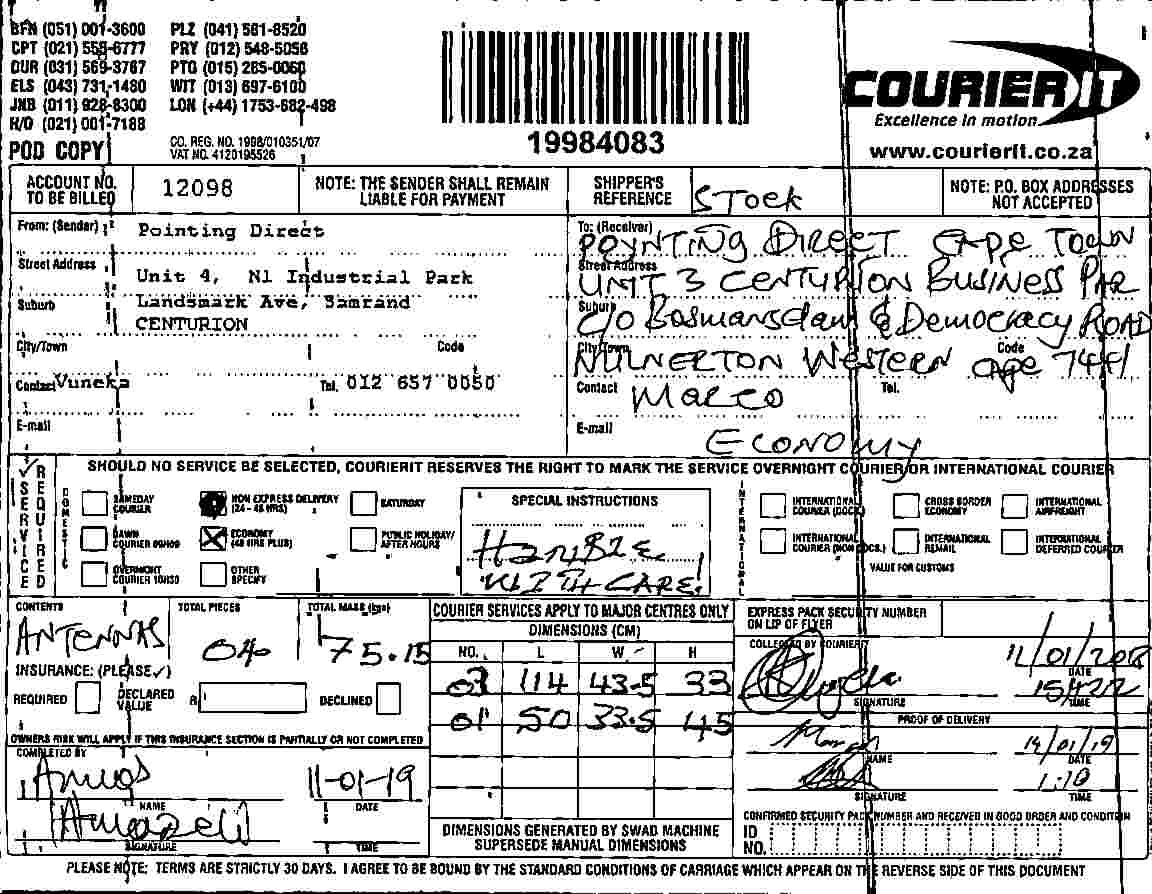 BFN (051) 001-3600 PLZ (041) 581-8520
CPT (021) 555-6777 PRY (012) 548-5056
DUR (031) 569-3767 PTG (015) 285-0060
ELS (043) 731-1480 WIT (013) 697-6100
JNB (011) 928-8300 LON (+44) 1753-682-498
H/O (021) 001-7188
POD COPY
CO. REG. NO. 1998/010351/07
VAT NO. 4120195526
19984083
COURIER IT
Excellence in motion
www.courierit.co.za
ACCOUNT NO. TO BE BILLED 12098
NOTE: THE SENDER SHALL REMAIN LIABLE FOR PAYMENT
SHIPPER'S REFERENCE STOCK
NOTE: P.O. BOX ADDRESSES NOT ACCEPTED
From: (Sender) Pointing Direct
Street Address Unit 4, N1 Industrial Park
Suburb Landsmark Ave, Samrand
CENTURION
City/Town Code
Contact Vuneka Tel. 012 657 0050
E-mail
To: (Receiver) POYNTING DIRECT CAPE TOWN
Street Address UNIT 3 CENTURION BUSINESS PAR
Suburb C/O Bosmansdam & Democracy ROAD
City/Town MILNERTON WESTERN CAPE Code 7441
Contact MARCO Tel.
E-mail
ECONOMY
SERVICE REQUIRED
SHOULD NO SERVICE BE SELECTED, COURIERIT RESERVES THE RIGHT TO MARK THE SERVICE OVERNIGHT COURIER OR INTERNATIONAL COURIER
DOMESTIC
SAMEDAY COURIER
NON EXPRESS DELIVERY (24 - 48 HRS)
SATURDAY
DAWN COURIER 09H00
ECONOMY (48 HRS PLUS)
PUBLIC HOLIDAY/ AFTER HOURS
OVERNIGHT COURIER 10H30
OTHER SPECIFY
SPECIAL INSTRUCTIONS
HANDLE
WITH CARE!
INTERNATIONAL
INTERNATIONAL COURIER (DOCS.)
CROSS BORDER ECONOMY
INTERNATIONAL AIRFREIGHT
INTERNATIONAL COURIER (NON DOCS.)
INTERNATIONAL REMAIL
INTERNATIONAL DEFERRED COURIER
VALUE FOR CUSTOMS
CONTENTS ANTENNAS
TOTAL PIECES 04
TOTAL MASS (kgs) 75.15
INSURANCE: (PLEASE ✓)
REQUIRED DECLARED VALUE R DECLINED
OWNERS RISK WILL APPLY IF THIS INSURANCE SECTION IS PARTIALLY OR NOT COMPLETED
COMPLETED BY
NAME
11-01-19
DATE
SIGNATURE
TIME
COURIER SERVICES APPLY TO MAJOR CENTRES ONLY
DIMENSIONS (CM)
NO. L W H
03 114 43.5 33
01 50 33.5 45
DIMENSIONS GENERATED BY SWAD MACHINE SUPERSEDE MANUAL DIMENSIONS
EXPRESS PACK SECURITY NUMBER ON LIP OF FLYER
COLLECTED BY COURIERIT
SIGNATURE
11/01/2018
DATE
TIME
PROOF OF DELIVERY
NAME
14/01/19
DATE
SIGNATURE
1:10
TIME
CONFIRMED SECURITY PACK NUMBER AND RECEIVED IN GOOD ORDER AND CONDITION
ID NO.
PLEASE NOTE: TERMS ARE STRICTLY 30 DAYS. I AGREE TO BE BOUND BY THE STANDARD CONDITIONS OF CARRIAGE WHICH APPEAR ON THE REVERSE SIDE OF THIS DOCUMENT